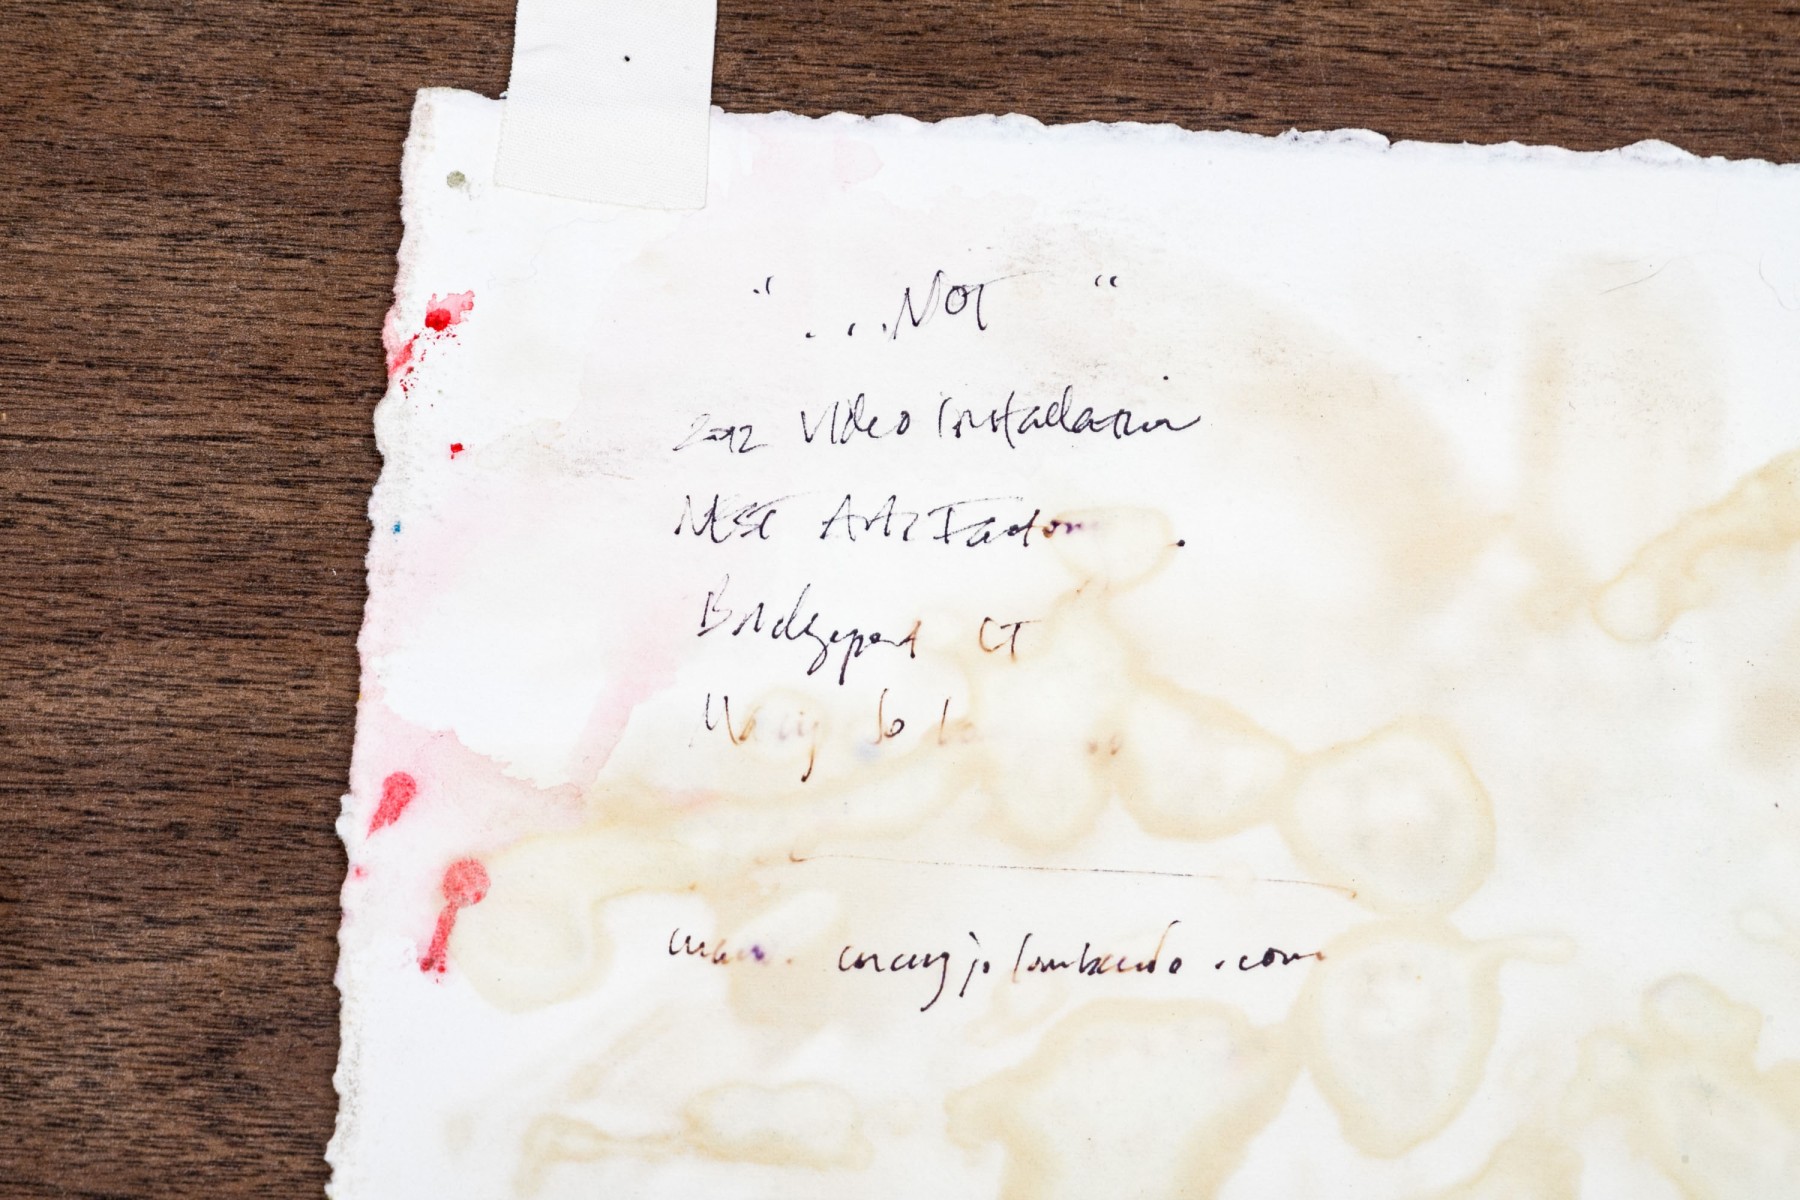 "...NOT"
2012 Video Installation
NEST Arts Factory.
Bridgeport CT
Mary Jo
www.maryjolombardo.com